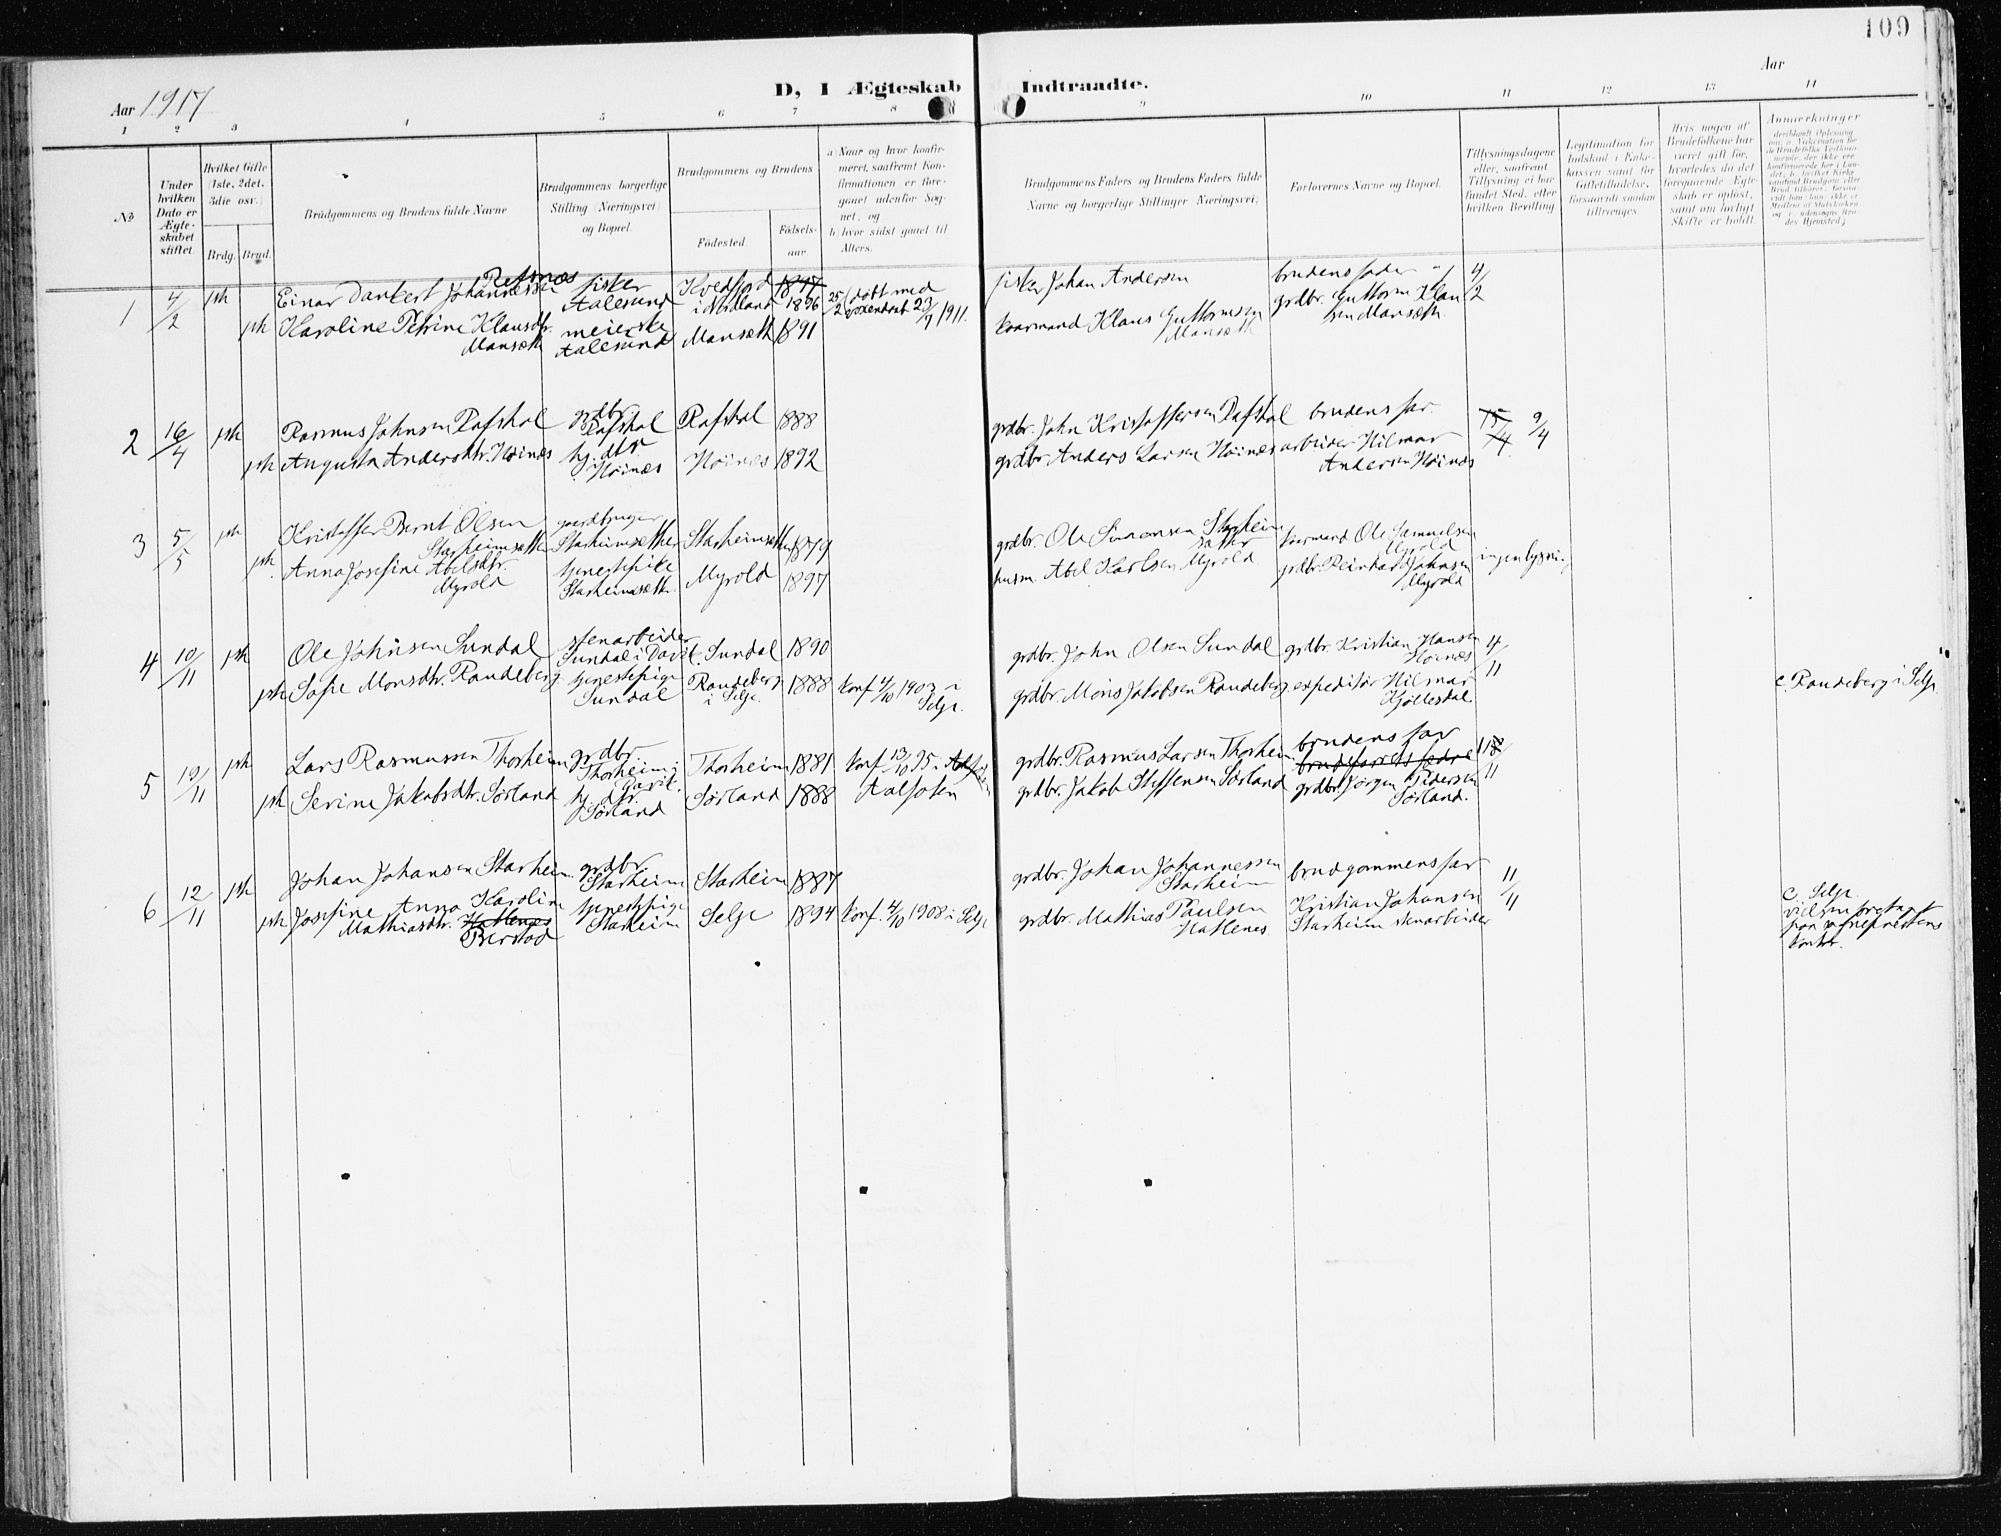 109
D, I Ægteskab Indtraadte.
Aar 1917
Aar
1 2 3 4 5 6 7 8 9 10 11 12 13 14
No
Under hvilken Dato er Ægteskabet stiftet.
Hvilket Gifte (1ste, 2det, 3die osv.)
Brdg. Brud.
Brudgommens og Brudens fulde Navne
Brudgommens borgerlige Stilling (Næringsvei) og Bopæl.
Brudgommens og Brudens
Födested.
Födsels-aar
a) Naar og hvor konfirmeret, saafremt Konfirmationen er foregaaet udenfor Sognet, og
b) hvor sidst gaaet til Alters.
Brudgommens Faders og Brudens Faders fulde Navne og borgerlige Stillinger (Næringsvei)
Forlovernes Navne og Bopæl.
Tillysningsdagene eller, saafremt Tillysning ei har fundet Sted, efter hvilken Bevilling
Legitimation for Indskud i Enkekassen samt for Giftetilladelse, forsaavidt saadan tiltrænges.
Hvis nogen af Brudefolkene har været gift før, hvorledes da det foregaaende Ægteskab er opløst, samt om lovligt Skifte er holdt.
Anmærkninger
1 4/2 1ste Einar Dankert Johannessen Refsnæs fisker Aalesund Kvedfjord i Nordland 1897 1896 25/2 døbt med
fisker Johan Andersen brudens fader 4/2
1ste Karoline Petrine Klausdtr. Mansæth meierske Aalesund Mansæth 1891
kaarmand Klaus Guttormsen Mansæth grdbr. Guttorm Klausen Mansæth
2 16/4 1ste Rasmus Johnsen Rafshol grdbr. Rafshol Rafshol 1888
grdbr. John Kristoffersen Rafshol brudens far 15/4 9/4
1ste Augusta Andersdtr. Høinæs hj. dtr Høinæs Høinæs 1892
grdbr. Anders Larsen Høinæs arbeider Hilmar Andersen Høinæs
3 5/5 1ste Kristoffer Bernt Olsen Starheimsæther gaardbruger Starheimsæther Starheimsæther 1879
grdbr. Ole Simonsen Starheimsæther kaarmand Ole Samuelsen Myrold
1ste Anna Josefine Abelsdtr. Myrold tjenestepike Starheimsæth. Myrold 1897
husm. Abel Karlsen Myrold grdbr. Reinhard Johnsen Myrold ingen lysning
4 10/11 1ste Ole Johnsen Sundal stenarbeider Sundal i Davik Sundal 1890
grdbr. John Olsen Sundal grdbr. Kristian Hansen Høinæs 4/11
1ste Sofie Monsdtr. Raudeberg tjenestepige Sundal Raudeberg i Selje 1888 konf. 4/10 1903 i Selje.
grdbr. Mons Jakobsen Raudeberg expeditør Hilmar Kjøllesdal
c. Raudeberg i Selje
5 10/11 1ste Lars Rasmussen Thorheim grdbr. Thorheim i Davik. Thorheim 1881 konf. 13/10 95 i
grdbr. Rasmus Larsen Thorheim brudens far
1ste Serine Jakobsdtr. Sørland hj. dtr. Sørland Sørland 1888 Aalfoten
grdbr. Jakob Steffensen Sørland grdbr. Jørgen Pedersen Sørland.
6 12/11 1ste Johan Johansen Starheim grdbr. Starheim Starheim 1887
grdbr. Johan Johannessen Starheim brudgommens far 11/11
1ste Josefine Anna Karolin Mathiasdtr. Hatlenes Berstad tjenestepige Starheim Selje 1894 konf. 4/10 1908 i Selje
grdbr. Mathias Paulsen Hatlenes Kristian Johansen Starheim stenarbeider
c. Selje
vielsen foretaget
paa sogneprestens
kontor.